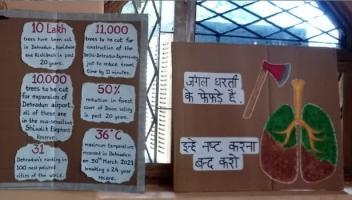 10 Lakh
trees have been cut
in Dehradun, Haridwar
and Rishikesh in past
20 years.
11,000
trees to be cut for
construction of the
Delhi-Dehradun Expressway
just to reduce travel
time by 11 minutes.
10,000
trees to be cut
for expansion of
Dehradun airport.
all of these are
in the eco-sensitive
Shivalik Elephant
Reserve.
50%
reduction in forest
cover of Doon valley
in past 20 years.
31
Dehradun's ranking in
100 most polluted
cities of the world.
36°C
maximum temperature
recorded in Dehradun
on 30th March 2021
breaking a 24 year
record.
जंगल धरती
के फेफड़े हैं.
इन्हे नष्ट करना
बन्द करो